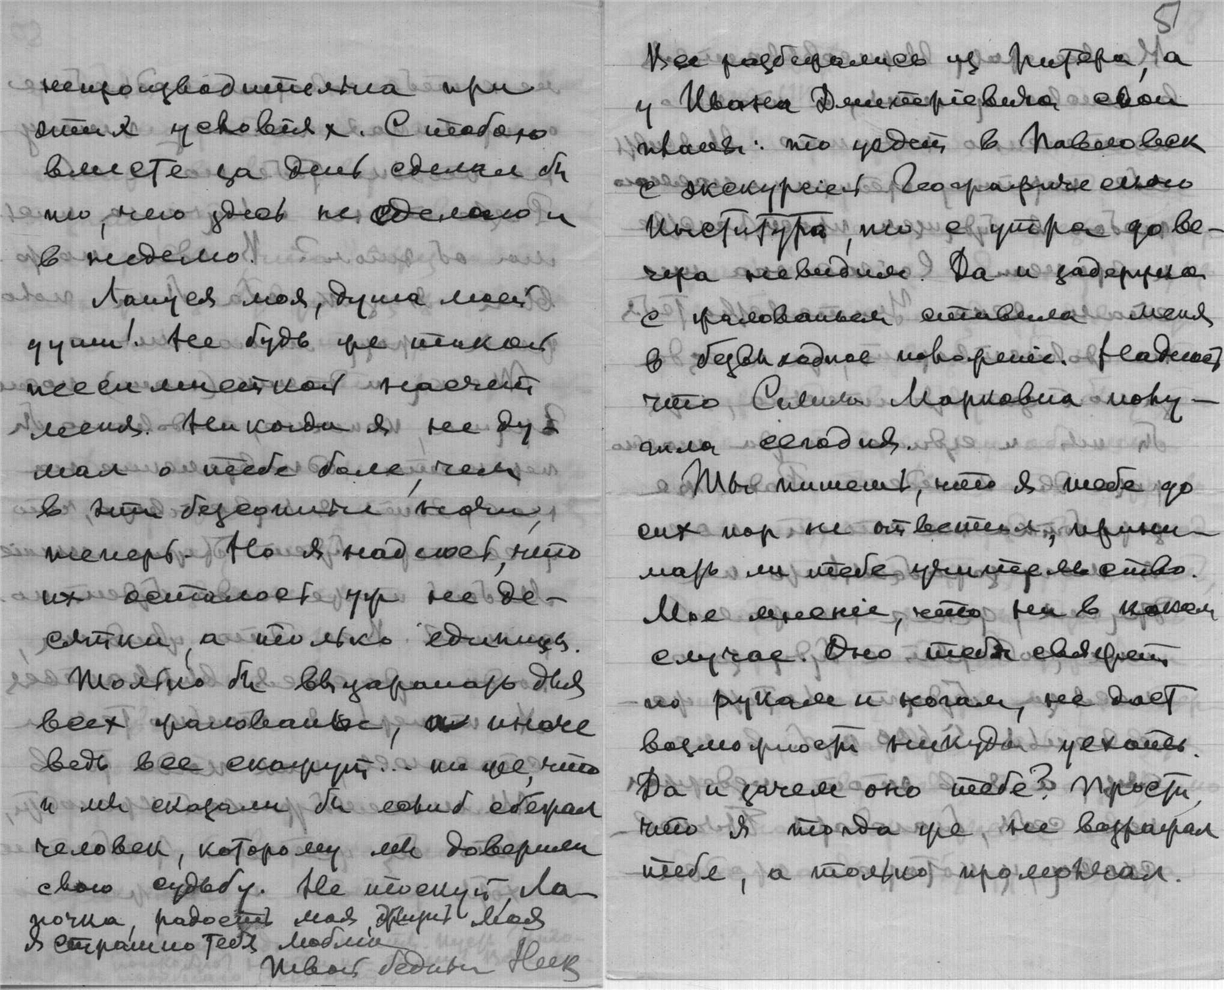 непроизводительна при
этих условіях. С тобою
вместе за день сделал бы
то, чего здесь не сделаю и
в неделю.
Лапуся моя, душа моей
души! Не будь же такой
пессимисткой насчет
меня. Никогда я не ду-
мал о тебе боле, чем
в эти безсонныя ночи,
теперь. Но я надеюсь, что
их осталось уж не де-
сятки, а только единицы.
Только бы выцарапать для
всех жалованье, а иначе
ведь все скажут... ни же, что
и мы сказали бы еслиб сбежал
человек, которому мы доверили
свою судьбу. Не тоскуй, Ла-
почка, радость моя, жизнь моя
Я страшно тебя люблю
Твой бедный
5
Все разбежались из Питера, а
у Ивана Дмитріевича свои
планы: то уедет в Павловск
с экскурсіей Географическаго
Института, то с утра до ве-
чера невидим. Да и задержка
с жалованьем ставила меня
в безвыходное положеніе. Надеюсь
что Марковна полу-
чила сегодня.
Ты пишешь, что я тебе до
сих пор не ответил, прини-
мать ли тебе учительство.
Мое мненіе, что ни в каком
случае. Оно тебя свяжет
по рукам и ногам, не даст
возможности никуда уехать.
Да и зачем оно тебе? Прости,
что я тогда же не возражал
тебе, а только промолчал.